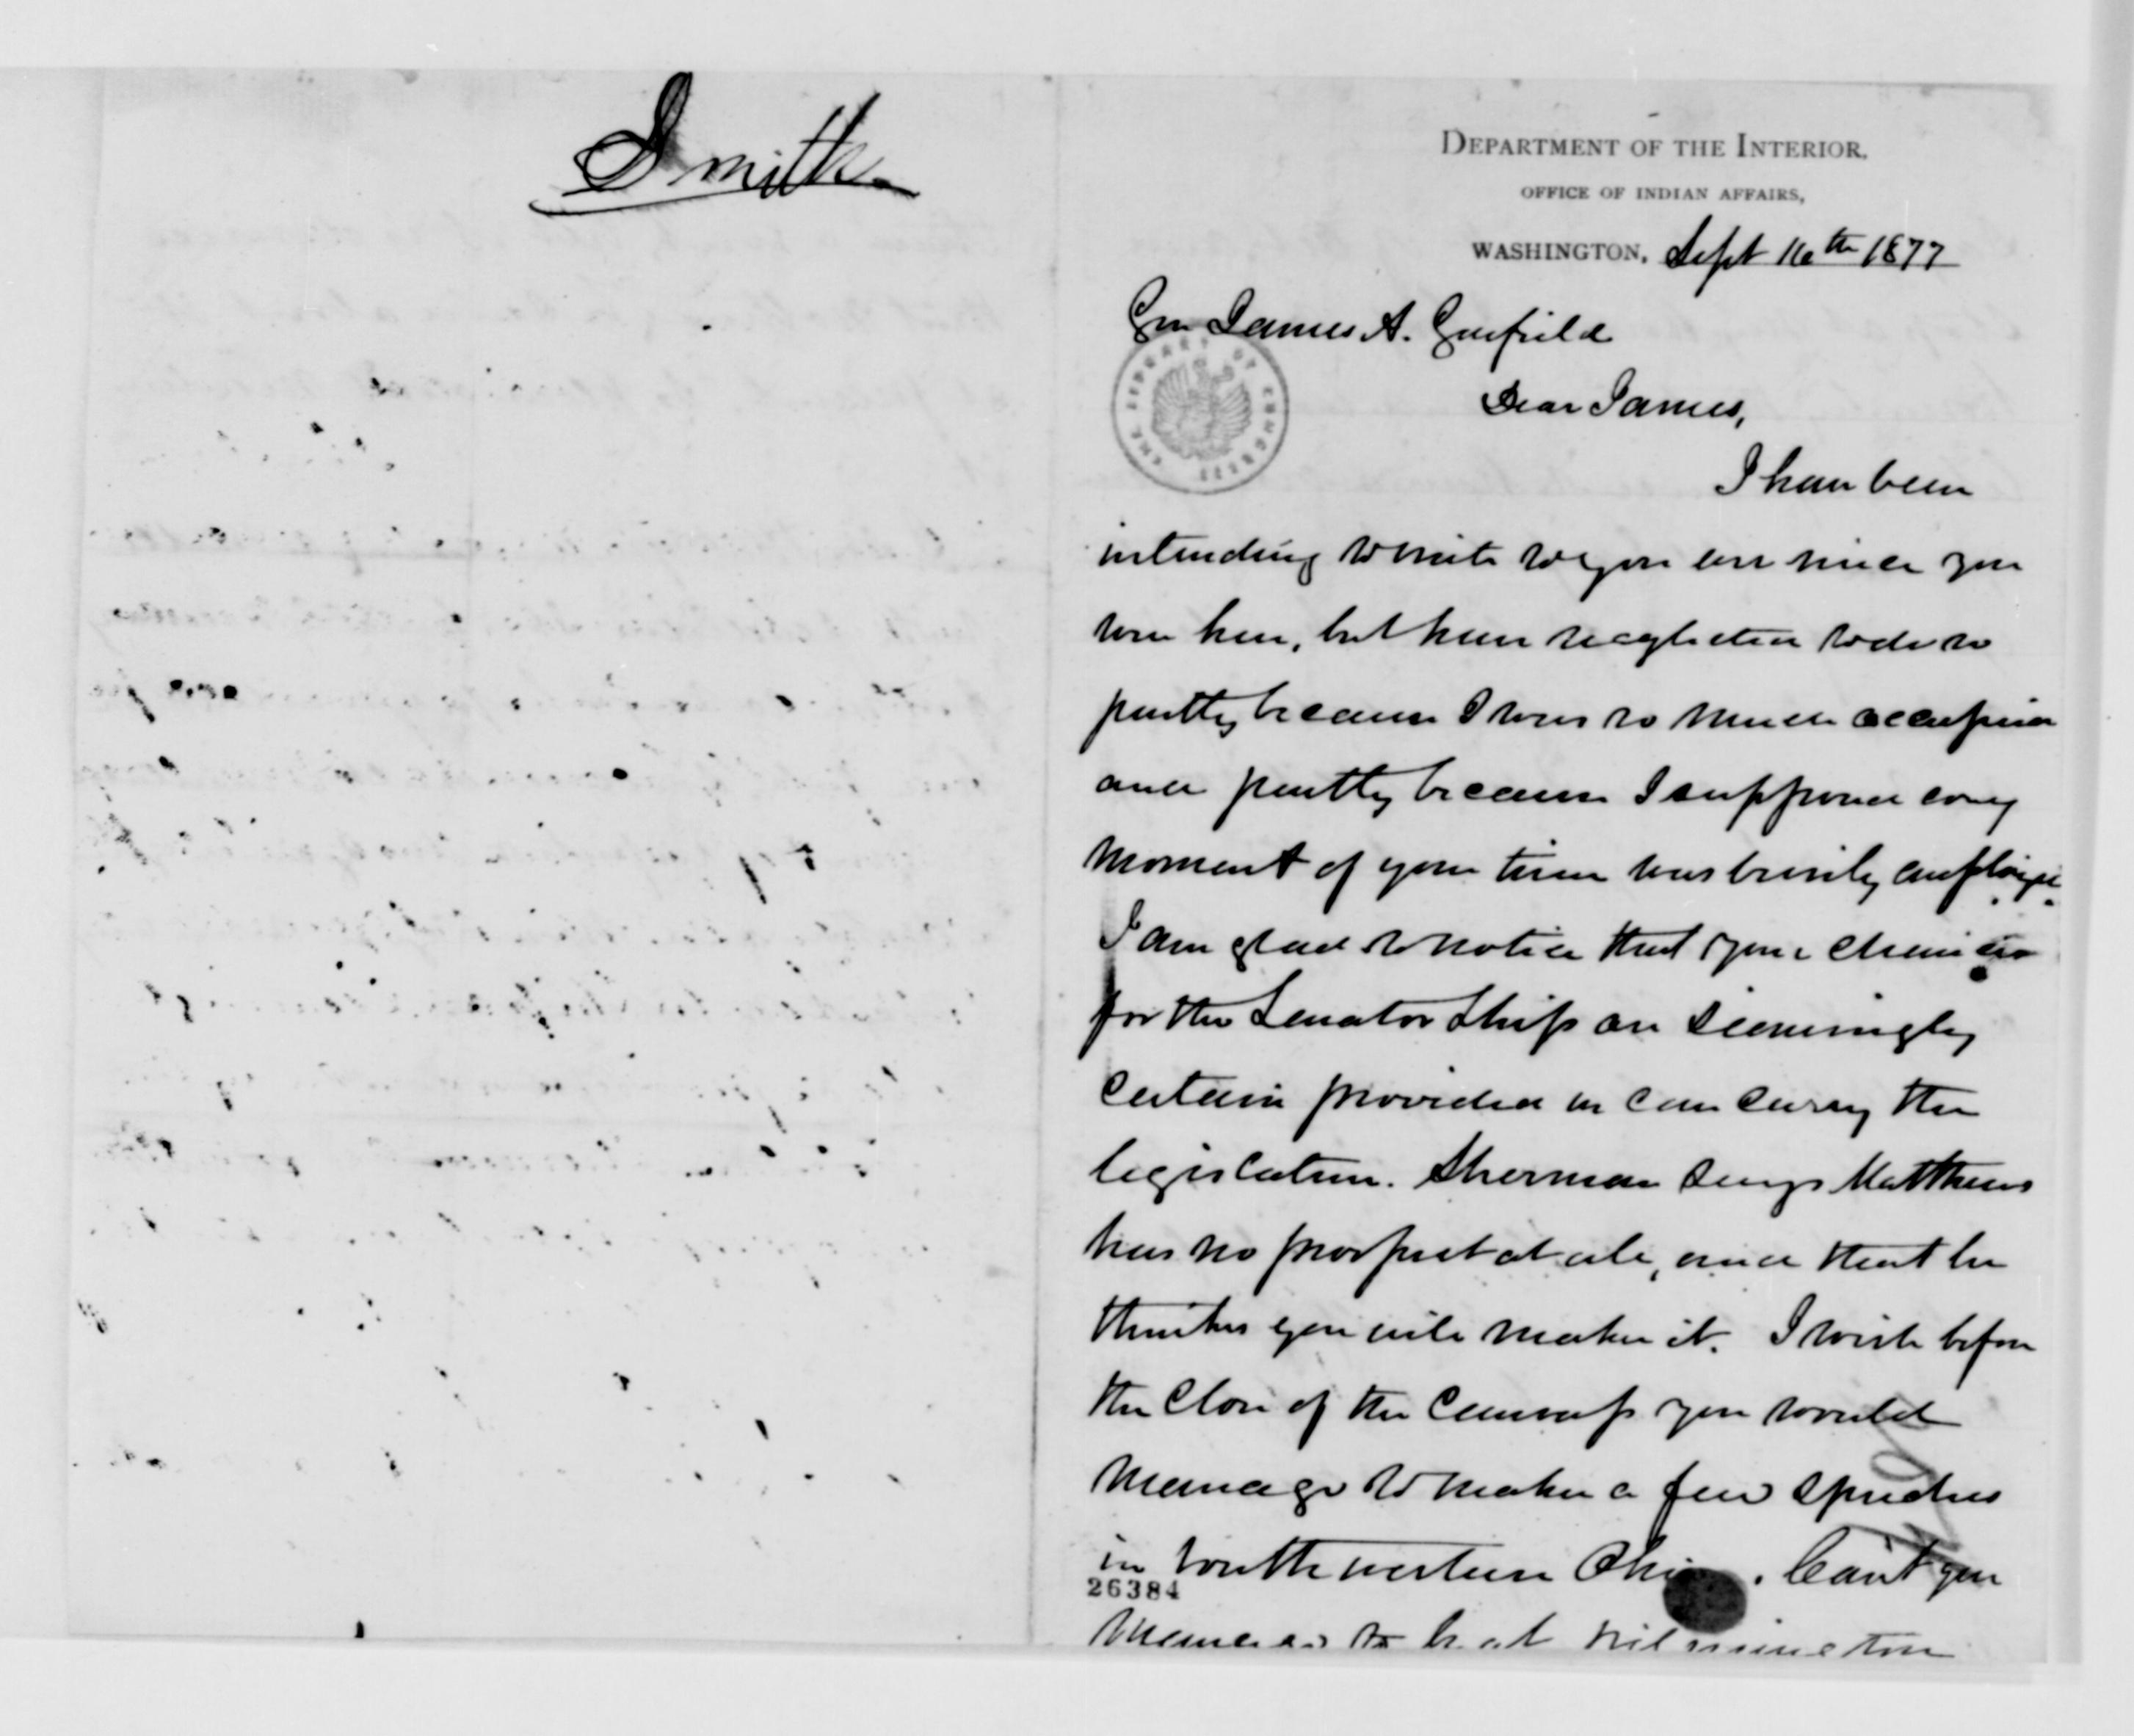 Smith
DEPARTMENT OF THE INTERIOR,
OFFICE OF INDIAN AFFAIRS,
WASHINGTON, Sept 16th 1877
Gen James A. Garfield
THE LIBRARY OF CONGRESS
Dear James,
I have been
intending to write to you ever since you
were here, but have neglected to do so
partly because I was so much occupied
and partly because I supposed every
moment of your time was busily employed.
I am glad to notice that your chances
for the Senator ship are seemingly
certain provided we can carry the
legislature. Sherman says Matthews
has no prospect at all, and that he
thinks you will make it. I wish before
the close of the canvass you would
manage to make a few speeches
in South western Ohio. Can't you
26384
manage to be at Wilmington